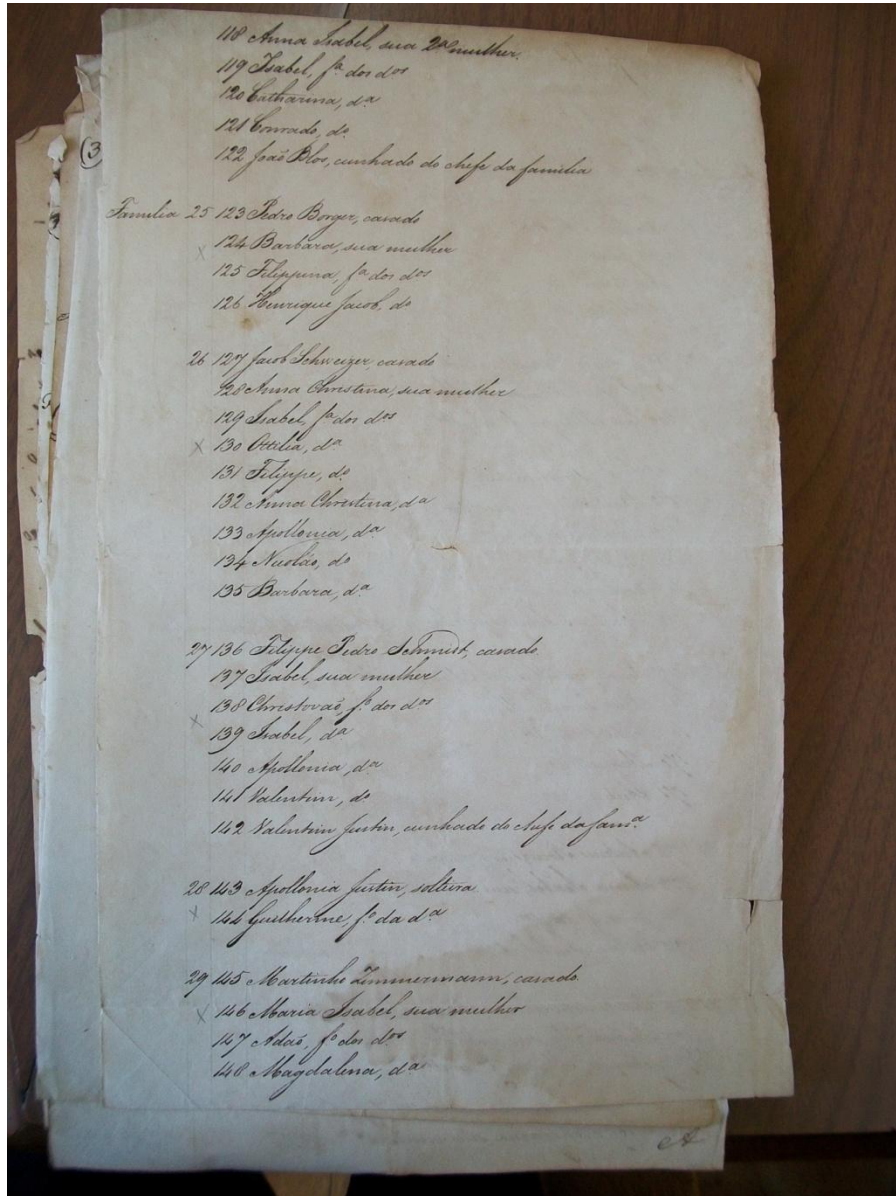 118 Anna Isabel, sua 2ª mulher.
119 Isabel, fª dos dos
120 Catharina, dª
121 Conrado, do
(3
122 João Blos, cunhado do chefe da familia
Familia 25 123 Pedro Borger, casado
x 124 Barbara, sua mulher
125 Filippina, fª dos dos
126 Henrique Jacob, do
26 127 Jacob Schweizer, casado
128 Anna Christina, sua mulher
129 Isabel, fª dos dos
x 130 Ottilia, dª
131 Filippe, do
132 Anna Christina, dª
133 Apollonia, dª
134 Nicolás, do
135 Barbara, dª
27 136 Filippe Pedro Schmidt, casado
137 Isabel, sua mulher
138 Christovaõ, fº dos dos
x 139 Isabel, dª
140 Apollonia, dª
141 Valentim, do
142 Valentim Justin, cunhado do chefe da famª
28 143 Apollonia Justin, solteira
x 144 Guilherme, fº da dª
29 145 Martinho Zimmermann, casado
x 146 Maria Isabel, sua mulher
147 Adaõ, fº dos dos
148 Magdalena, dª